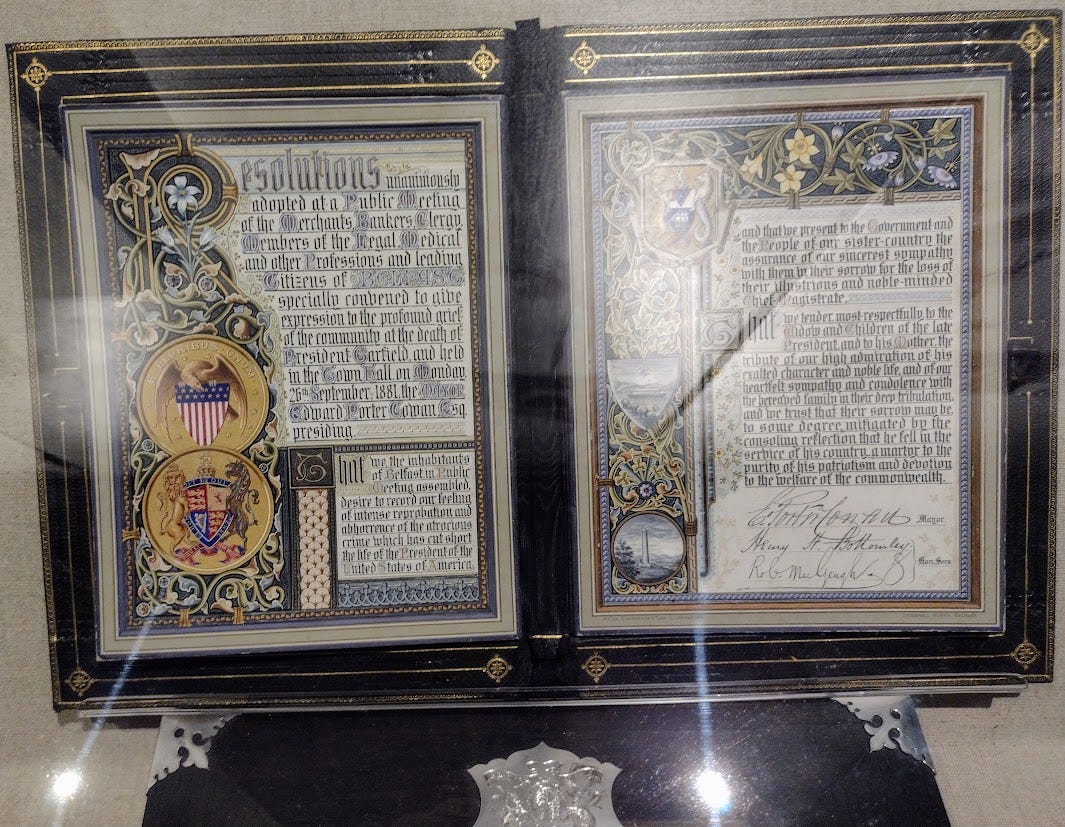 Resolutions unanimously
adopted at a Public Meeting
of the Merchants, Bankers, Clergy,
Members of the Legal Medical
and other Professions and leading
Citizens of BELFAST
specially convened to give
expression to the profound grief
of the community at the death of
President Garfield, and held
in the Town Hall on Monday,
26th September, 1881, the MAYOR
Edward Porter Cowan, Esq.
presiding.
E PLURIBUS UNUM
That we, the inhabitants
of Belfast, in Public
Meeting assembled,
desire to record our feeling
of intense reprobation and
abhorrence of the atrocious
crime which has cut short
the life of the President of the
United States of America,
and that we present to the Government and
the People of our sister-country the
assurance of our sincerest sympathy
with them in their sorrow for the loss of
their illustrious and noble-minded
Chief Magistrate.
That we tender most respectfully to the
Widow and Children of the late
President, and to his Mother, the
tribute of our high admiration of his
exalted character and noble life, and of our
heartfelt sympathy and condolence with
the bereaved family in their deep tribulation,
and we trust that their sorrow may be,
to some degree, mitigated by the
consoling reflection that he fell in the
service of his country, a martyr to the
purity of his patriotism and devotion
to the welfare of the commonwealth.
Mayor.
Henry H. Bottomley
Hon. Secs.